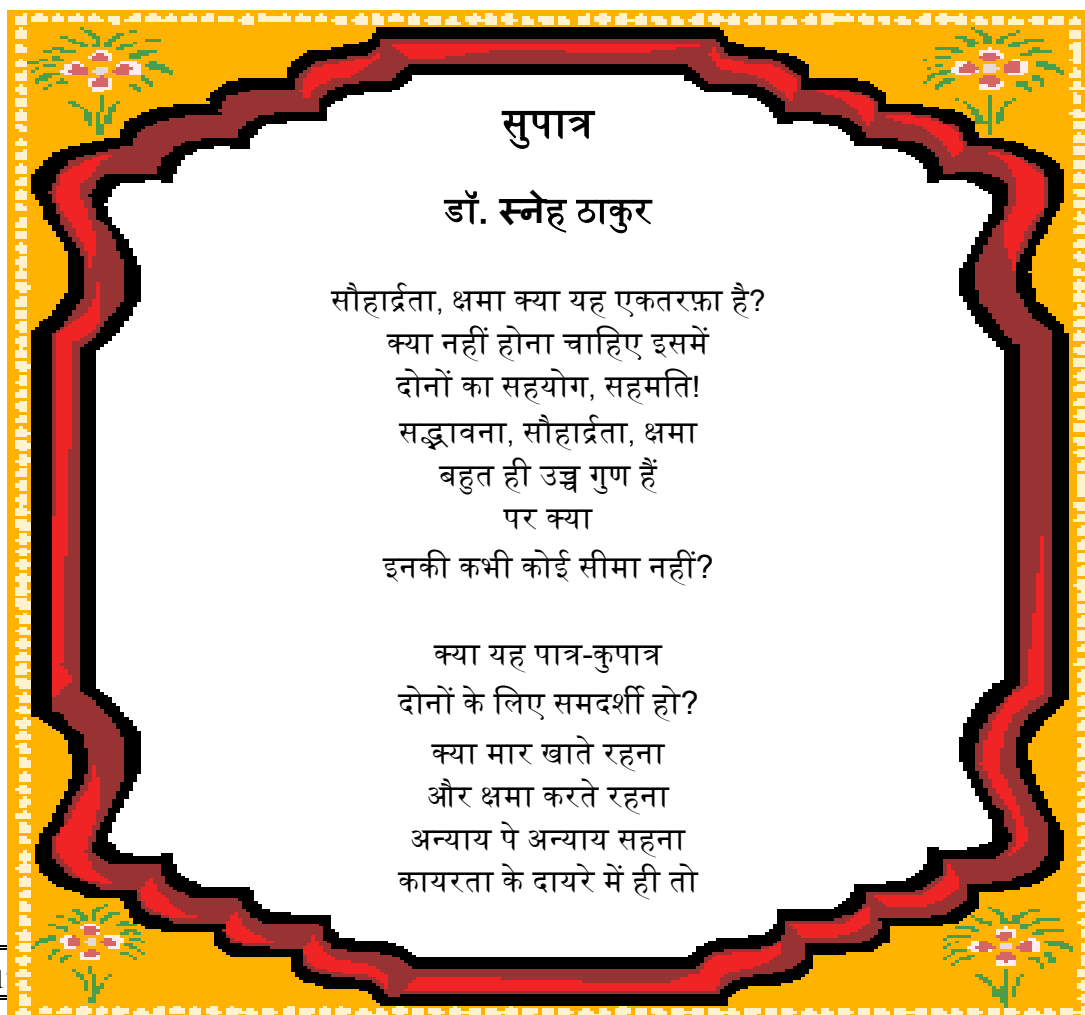 सुपात्र
डॉ. स्नेह ठाकुर
सौहार्द्रता, क्षमा क्या यह एकतरफ़ा है?
क्या नहीं होना चाहिए इसमें
दोनों का सहयोग, सहमति!
सद्भावना, सौहार्द्रता, क्षमा
बहुत ही उच्च गुण हैं
पर क्या
इनकी कभी कोई सीमा नहीं?
क्या यह पात्र-कुपात्र
दोनों के लिए समदर्शी हो?
क्या मार खाते रहना
और क्षमा करते रहना
अन्याय पे अन्याय सहना
कायरता के दायरे में ही तो